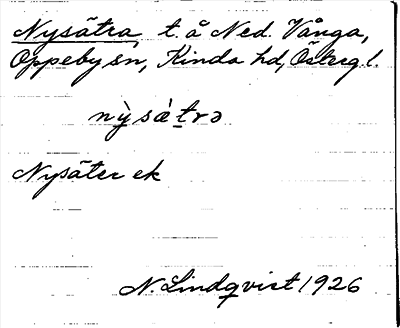 Nysätra, t. å Ned. Vånga,
Oppeby sn, Kinda hd, Östergl.
nỳsàtrə
Nysäter ek
N. Lindqvist 1926